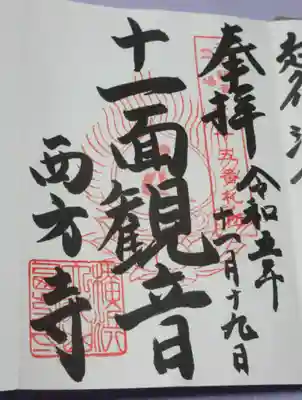 奉拝
令和五年
十一月十九日
五番札所
十一面観音
西方寺